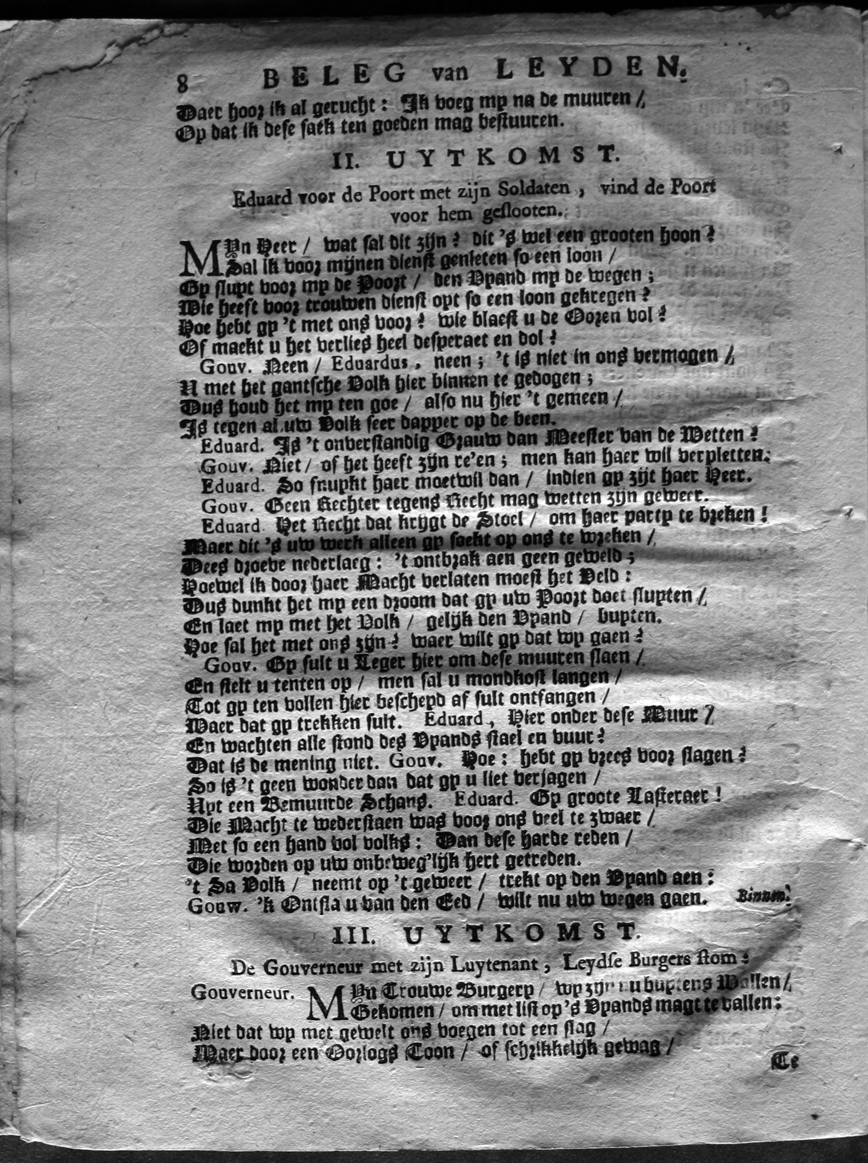 8 BELEG van LEYDEN.
Daer hoor ik al gerucht: Ik voeg my na de muuren /
Op dat ik dese saek ten goeden mag bestuuren.
II. UYTKOMST.
Eduard voor de Poort met zijn Soldaten, vind de Poort
voor hem geslooten.
MYn Heer / wat sal dit zijn? dit 's wel een grooten hoon?
Sal ik voor mijnen dienst genieten so een loon /
Gy sluyt voor my de Poort / den Vyand my de wegen;
Wie heeft voor trouwen dienst oyt so een loon gekregen?
Hoe hebt gy 't met ons voor? wie blaest u de Ooren vol?
Of maekt u het verlies heel desperaet en dol?
Gouv. Neen / Eduardus, neen; 't is niet in ons vermogen /
U met het gantsche Volk hier binnen te gedogen;
Dus houd het my ten goe / also nu hier 't gemeen /
Is tegen al uw Volk seer dapper op de been.
Eduard. Is 't onverstandig Grauw dan Meester van de Wetten?
Gouv. Niet / of het heeft zijn re'en; men kan haer wil verpletten.
Eduard. So snuykt haer moetwil dan / indien gy zijt haer Heer.
Gouv. Geen Rechter tegens Recht mag wetten zijn geweer.
Eduard. Het Recht dat krygt de Stoel / om haer party te breken!
Maer dit 's uw werk alleen gy soekt op ons te wreken /
Dees droeve nederlaeg: 't ontbrak aen geen geweld;
Hoewel ik door haer Macht verlaten moest het Veld:
Dus dunkt het my een droom dat gy uw Poort doet sluyten /
En laet my met het Volk / gelijk den Vyand / buyten.
Hoe sal het met ons zijn? waer wilt gy dat wy gaen?
Gouv. Gy sult u Leger hier om dese muuren slaen /
En stelt u tenten op / men sal u mondkost langen /
Tot gy ten vollen hier bescheyd af sult ontfangen /
Waer dat gy trekken sult. Eduard, Hier onder dese Muur?
En wachten alle stond des Vyands stael en vuur?
Dat is de mening niet. Gouv. Hoe: hebt gy vrees voor slagen?
So is 't geen wonder dan dat gy u liet verjagen /
Uyt een Bemuurde Schans. Eduard. Gy groote Lasteraer!
Die Macht te wederstaen was voor ons veel te zwaer /
Met so een hand vol volks: Dan dese harde reden /
Die worden op uw onbeweg'lijk hert getreden.
't Sa Volk / neemt op 't geweer / trekt op den Vyand aen:
Gouw. 'k Ontsla u van den Eed / wilt nu uw wegen gaen. Binnen.
III. UYTKOMST.
De Gouverneur met zijn Luytenant, Leydse Burgers stom:
Gouverneur. MYn Trouwe Burgery / wy zijn nu buytens Wallen /
Gekomen / om met list op 's Vyands magt te vallen:
Niet dat wy met gewelt ons voegen tot een slag /
Maer door een Oorlogs Toon / of schrikkelijk gewag /
Te